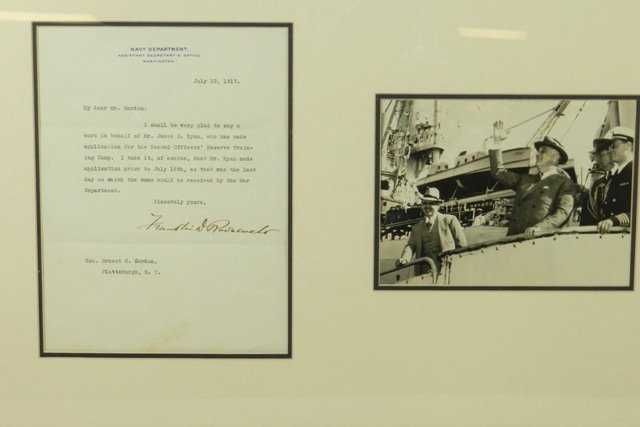 NAVY DEPARTMENT.
ASSISTANT SECRETARY'S OFFICE.
WASHINGTON.
July 23, 1917.
My dear Mr. Gordon:
I shall be very glad to say a
word in behalf of Mr. James S. Ryan, who has made
application for the Second Officers' Reserve Train-
ing Camp. I take it, of course, that Mr. Ryan made
application prior to July 15th, as that was the last
day on which the same would be received by the War
Department.
Sincerely yours,
Franklin D Roosevelt
Hon. Ernest C. Gordon,
Plattsburgh, N. Y.